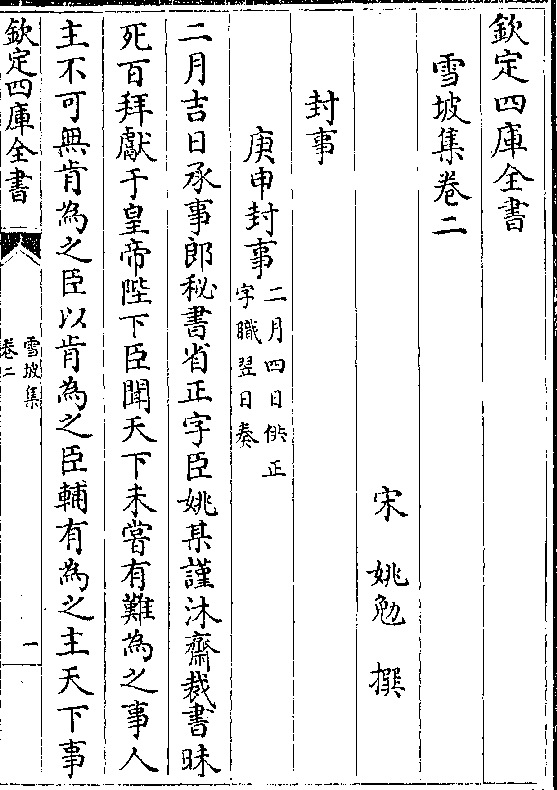 欽定四庫全書
雪坡集卷二
宋 姚勉 撰
封事
庚申封事二月四日供正字職翌日奏
二月吉日承事郎秘書省正字臣姚某謹沐齋裁書昧
死百拜獻于皇帝陛下臣聞天下未嘗有難為之事人
主不可無肯為之臣以肯為之臣輔有為之主天下事
欽定四庫全書
雪坡集
卷二
一